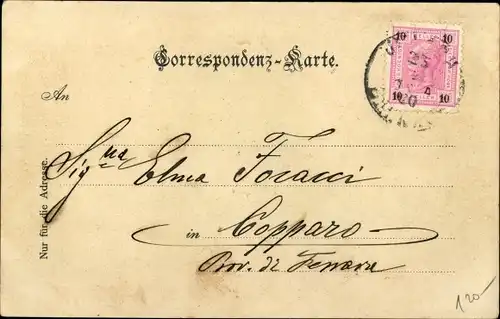 Correspondenz-Karte.
10 10
10 10
An
Sig.na Elma Foracci
in Copparo
Prov. di Ferrara
Nur für die Adresse.
120-